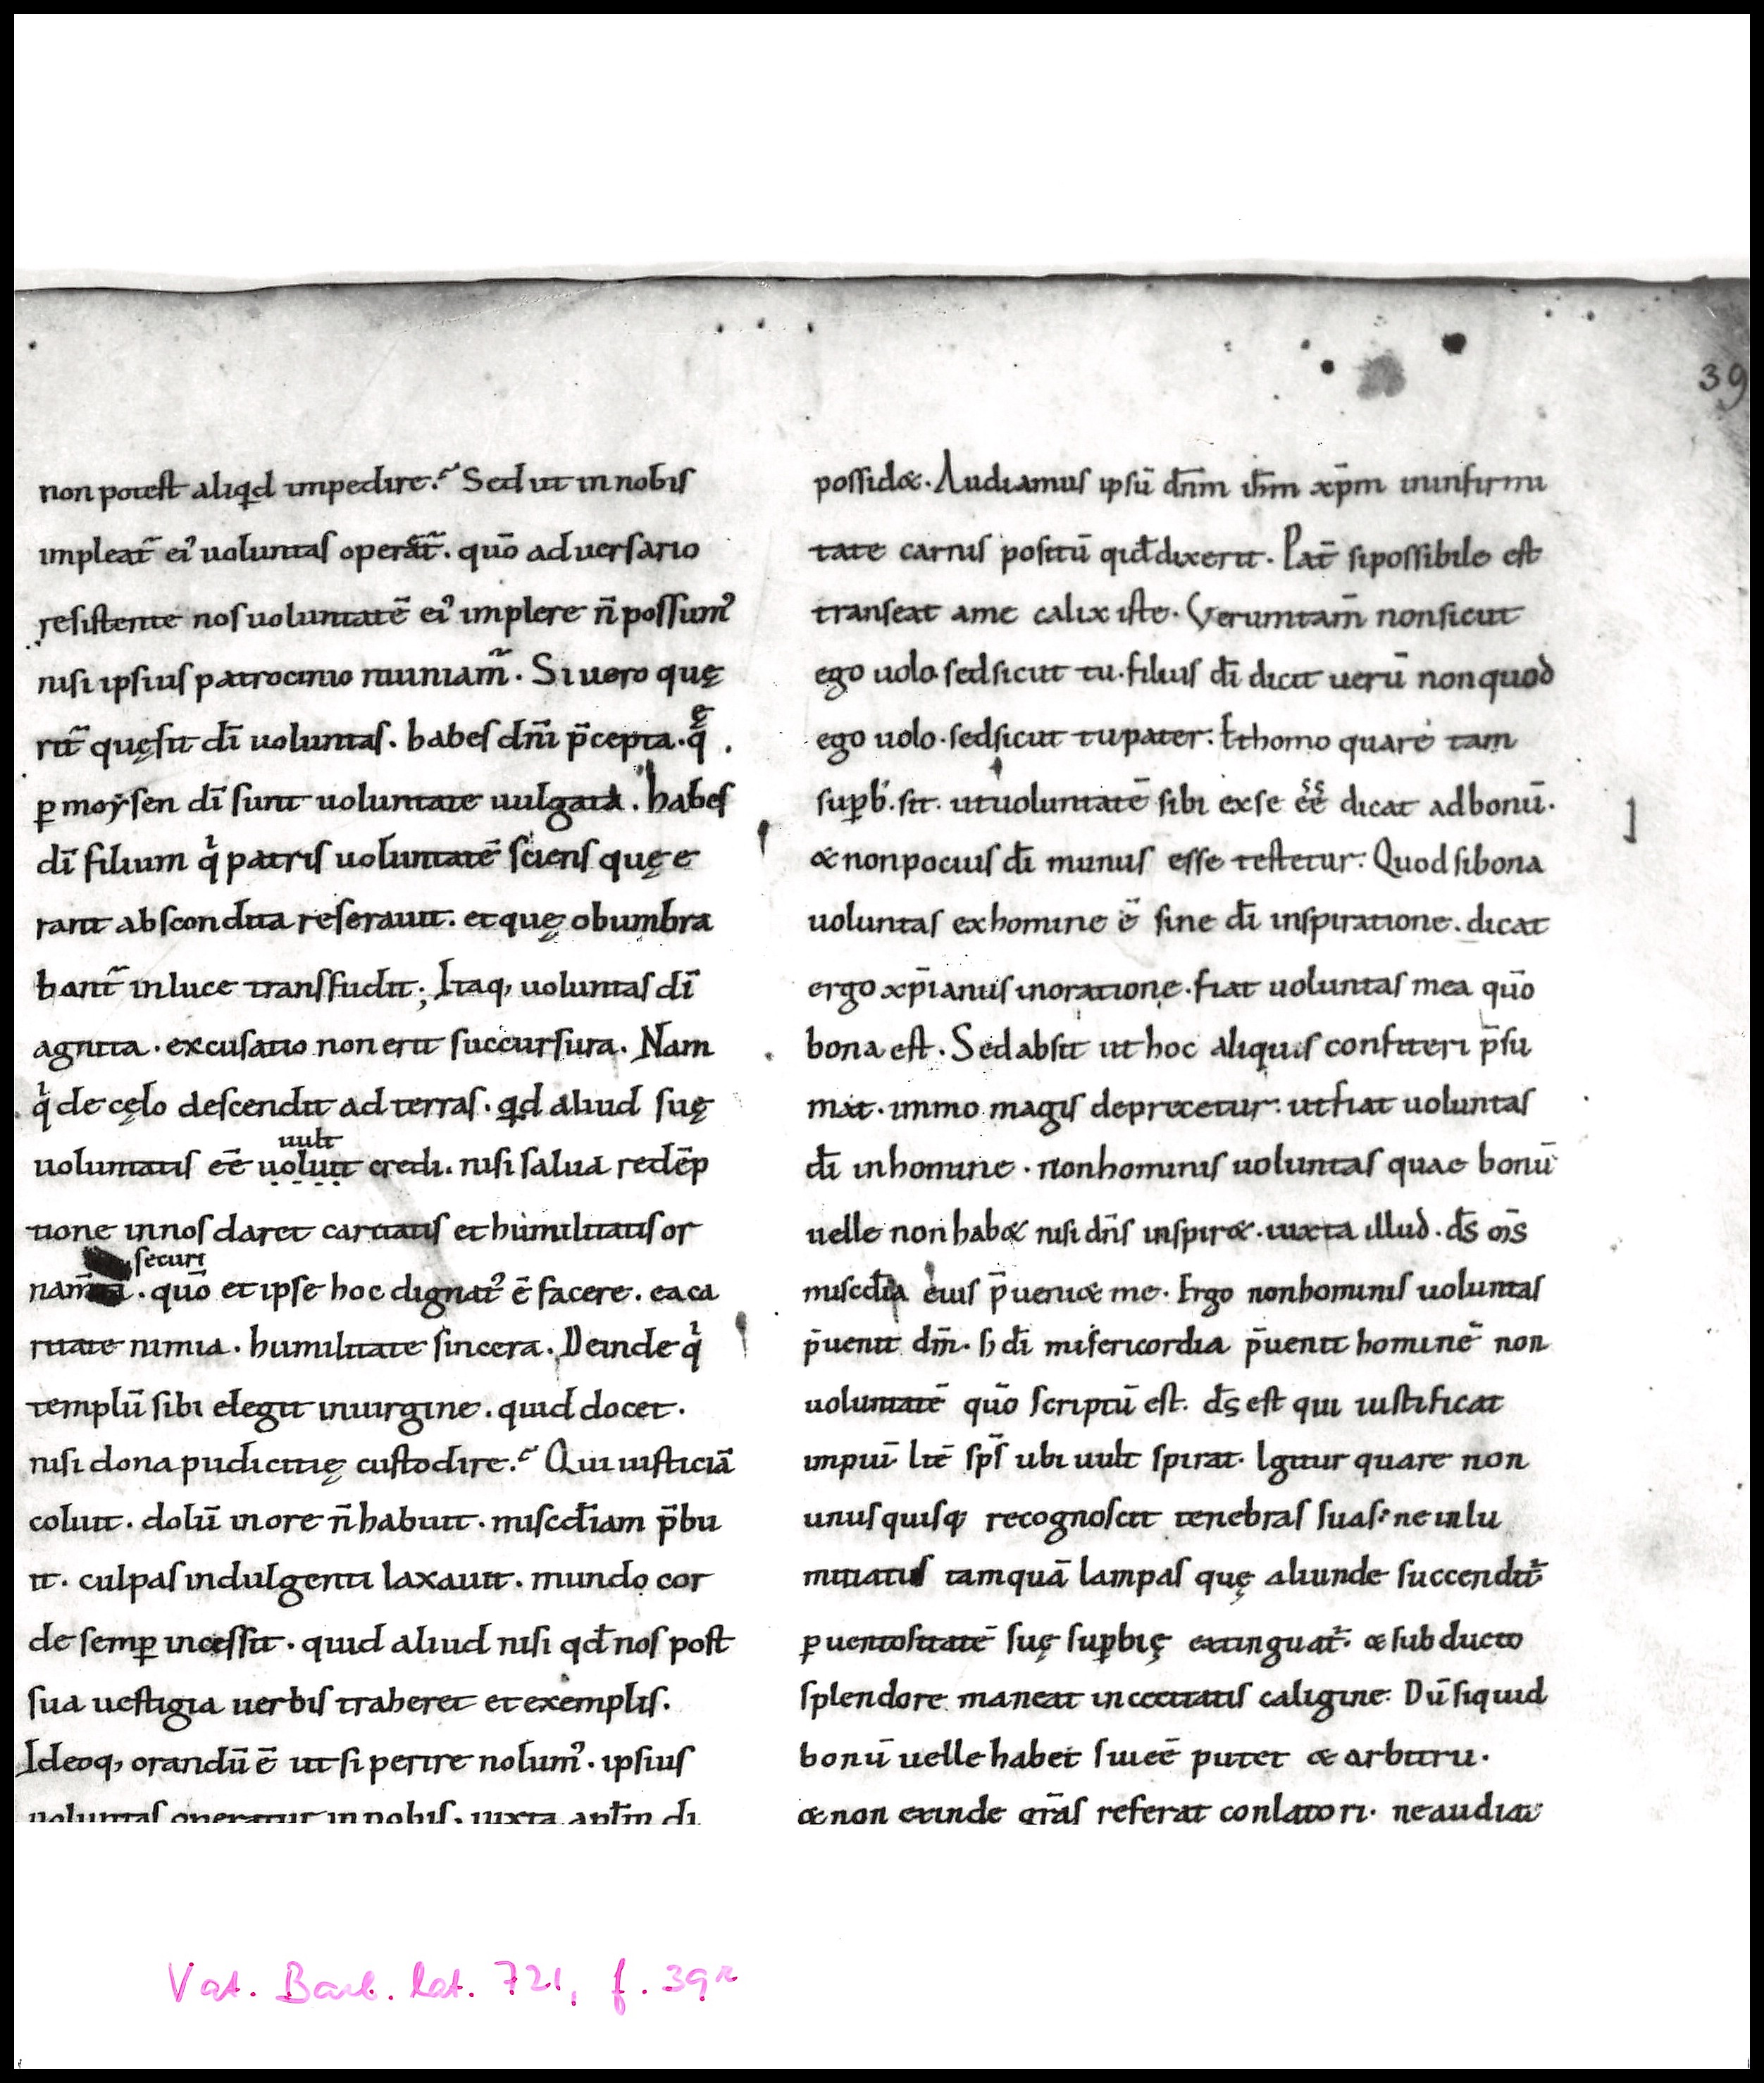 non potest aliqd impedire. Sed ut in nobis
impleat̄ ei᾿ uoluntas operat̄. quō aduersario
resistente nos uoluntatē ei᾿ implere n̄ possum᾿
nisi ipsius patrocinio muniam̄. Si uero quę
rit̄ quę sit dī uoluntas. habes dn̄i p̄cepta. q̄ę
ꝑ moẏsen dī sunt uoluntate uulgata. habes
dī filium qͥ patris uoluntatē sciens quę e
rant abscondita reserauit. et quę obumbra
bant̄ in luce transfudit; Itaq, uoluntas dī
agnita. excusatio non erit succursura. Nam
qͥ de cęlo descendit ad terras. qd aliud suę
uult
uoluntatis eē uoluit credi. nisi salua redēp
tione in nos daret caritatis et humilitatis or
securi
nam̄. quō et ipse hoc dignat᾿ ē facere. ea ca
ritate nimia. humilitate sincera. Deinde qͥ
templū sibi elegit in uirgine. quid docet.
nisi dona pudicitię custodire. Qui iusticiā
coluit. dolū in ore n̄ habuit. miscd̄iam p̄bu
it. culpas indulgenti laxauit. mundo cor
de semꝑ incessit. quid aliud nisi qd̄ nos post
sua uestigia uerbis traheret et exemplis.
Ideoq, orandū ē ut si perire nolum᾿. ipsius
uoluntas operatur in nobis. iuxta apl̄m di
39
possid&. Audiamus ipsū dn̄m ih̄m xp̄m in infirmi
tate carnis positū quid dixerit. Pat̄ si possibile est
transeat a me calix iste. Verumtam̄ non sicut
ego uolo. sed sicut tu. filius dī dicit uerū non quod
ego uolo. sed sicut tu pater. Et homo quare tam
suꝑb. sit. ut uoluntatē sibi ex se eē dicat ad bonū.
& non pocius dī munus esse testetur. Quod si bona
uoluntas ex homine ē sine dī inspiratione. dicat
ergo xp̄ianus in oratione. fiat uoluntas mea quō
bona est. Sed absit ut hoc aliquis confiteri p̄su
mat. immo magis deprecetur. ut fiat uoluntas
dī in homine. non hominis uoluntas quae bonū
uelle non hab& nisi dn̄s inspir&. iuxta illud. ds̄ ms̄
miscd̄ia eius p̄ueni& me. Ergo non hominis uoluntas
p̄uenit dm̄. s; dī misericordia p̄uenit hominē non
uoluntatē quō scriptū est. ds̄ est qui iustificat
impiū. Itē sps̄ ubi uult spirat. Igitur quare non
unusquisq; recognoscit tenebras suas. ne inlu
minatus tamquā lampas quę aliunde succendit̄
ꝑ uentositatē suę suꝑbię extinguat̄. & subducto
splendore maneat in cecitatis caligine. Dū si quid
bonū uelle habet sui eē putet & arbitrii.
& non exinde grās referat conlatori. ne audiat
Vat. Barb. lat. 721, f. 39r